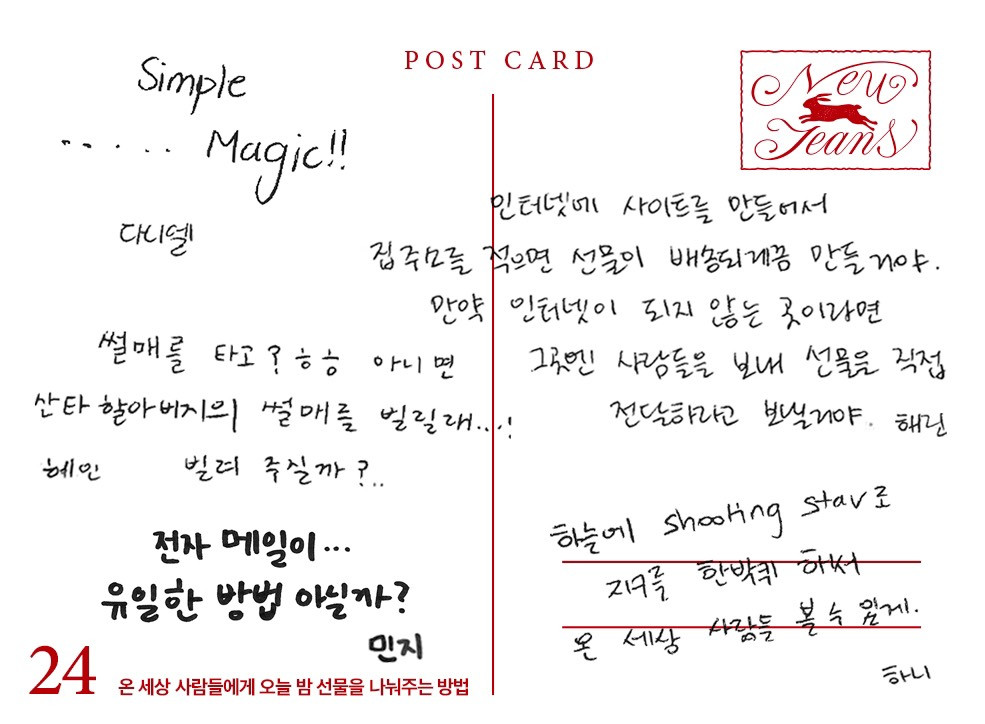 POST CARD
New
Jeans
Simple
..... Magic!!
다니엘
인터넷에 사이트를 만들어서
집주소를 적으면 선물이 배송되게끔 만들거야.
만약 인터넷이 되지 않는 곳이라면
그곳엔 사람들을 보내 선물을 직접
전달하라고 보낼거야. 해린
썰매를 타고? ㅎㅎ 아니면
산타할아버지의 썰매를 빌릴래...!
혜인 빌려 주실까?..
전자 메일이...
유일한 방법 아닐까?
민지
하늘에 shooting star로
지구를 한바퀴 하서
온 세상 사람들 볼 수 있게.
하니
24 온 세상 사람들에게 오늘 밤 선물을 나눠주는 방법